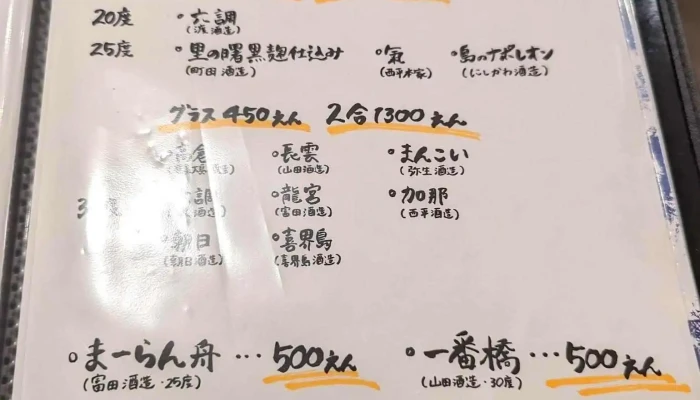 20度 ・六調
(渡酒造)
25度 ・里の曙黒麹仕込み ・氣 ・島のナポレオン
(町田酒造) (西平本家) (にしかわ酒造)
グラス450えん 2合1300えん
・高倉 ・長雲 ・まんこい
(山田酒造) (弥生酒造)
調 ・龍宮 ・加那
(富田酒造) (西平酒造)
・朝日 ・喜界島
(朝日酒造) (喜界島酒造)
・まーらん舟…500えん ・一番橋…500えん
(富田酒造・25度) (山田酒造・30度)